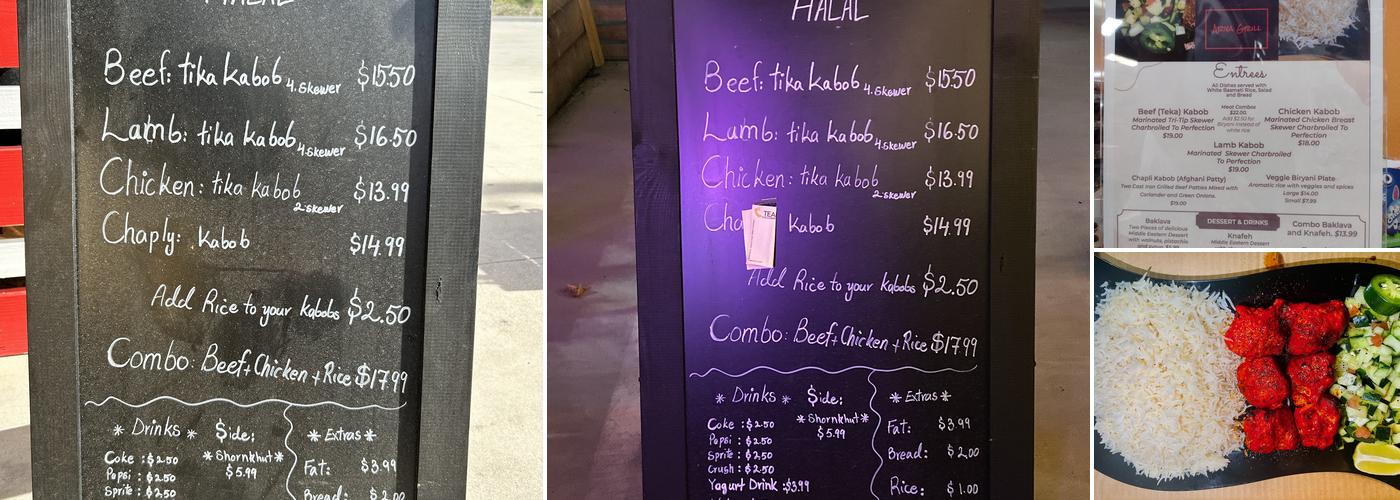 HALAL
Beef: tika kabob 4.skewer $15.50
Lamb: tika kabob 4.skewer $16.50
Chicken: tika kabob 2 skewer $13.99
Chaply: kabob $14.99
Add Rice to your kabobs $2.50
Combo: Beef+Chicken+Rice $17.99
* Drinks *
Coke :$2.50
Papsi :$2.50
Sprite :$2.50
Side:
*Shornkhut*
$5.99
* Extras *
Fat: $3.99
Bread: $2.00
HALAL
Beef: tika kabob 4.skewer $15.50
Lamb: tika kabob 4.skewer $16.50
Chicken: tika kabob 2 skewer $13.99
Cha
TEA
kabob $14.99
Add Rice to your kabobs $2.50
Combo: Beef+Chicken+Rice $17.99
* Drinks *
Coke :$2.50
Popsi :$2.50
Sprite :$2.50
Crush :$2.50
Yogurt Drink :$3.99
Side:
*Shornkhut*
$5.99
* Extras *
Fat: $3.99
Bread: $2.00
Rice: $1.00
ARIYA GRILL
Entrees
All Dishes served with
White Basmati Rice, Salad
and Bread
Beef (Teka) Kabob
Marinated Tri-Tip Skewer
Charbroiled To Perfection
$19.00
Meat Combos
$22.00
Add $2.50 for
Biryani instead of
white rice
Chicken Kabob
Marinated Chicken Breast
Skewer Charbroiled To
Perfection
$18.00
Lamb Kabob
Marinated Skewer Charbroiled
To Perfection
$19.00
Chapli Kabob (Afghani Patty)
Two Cast Iron Grilled Beef Patties Mixed with
Coriander and Green Onions.
$19.00
Veggie Biryani Plate
Aromatic rice with veggies and spices
Large $14.00
Small $7.99
Baklava
Two Pieces of delicious
Middle Eastern Dessert
with walnuts, pistachio
DESSERT & DRINKS
Knafeh
Middle Eastern Dessert
Combo Baklava
and Knafeh. $13.99